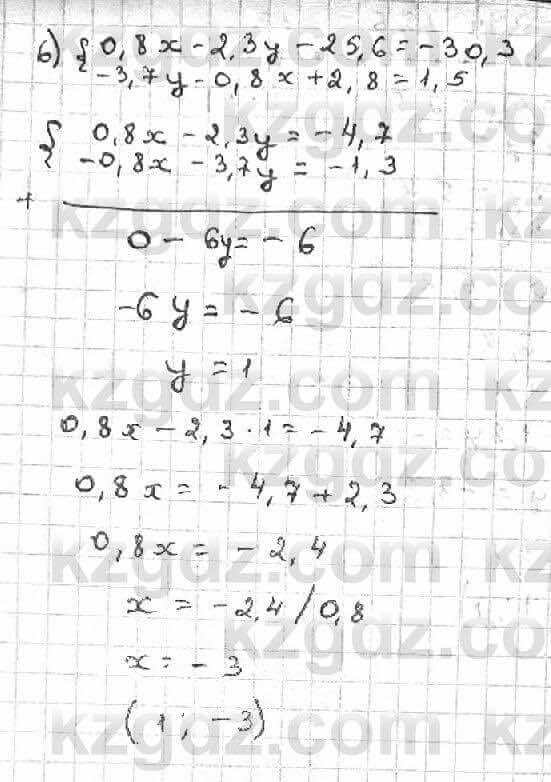 6) { 0,8x - 2,3y - 25,6 = -30,3
-3,7y - 0,8x + 2,8 = 1,5
{ 0,8x - 2,3y = -4,7
-0,8x - 3,7y = -1,3
+
0 - 6y = -6
-6y = -6
y = 1
0,8x - 2,3 · 1 = -4,7
0,8x = -4,7 + 2,3
0,8x = -2,4
x = -2,4 / 0,8
x = -3
(1; -3)
kzgdz.com
kzgdz.com
kzgdz.com
kzgdz.com
kzgdz.com
kzgdz.com
kzgdz.com
kzgdz.com
kzgdz.com